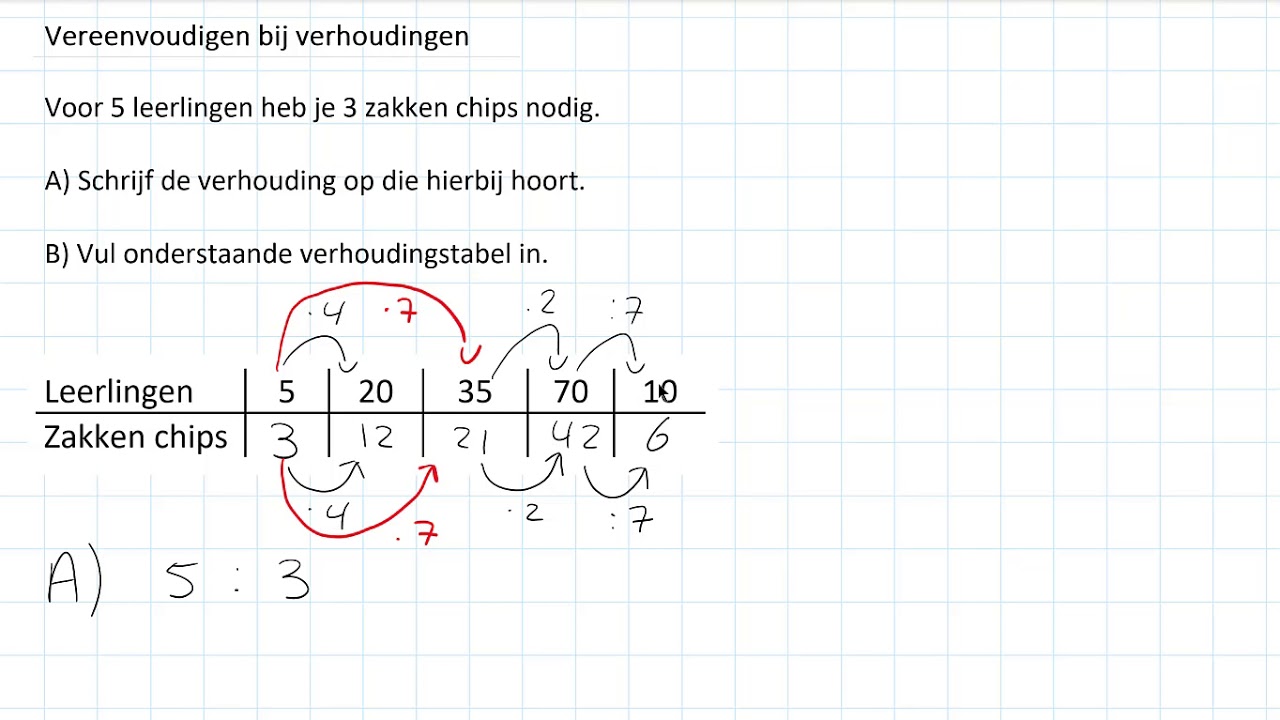 Vereenvoudigen bij verhoudingen
Voor 5 leerlingen heb je 3 zakken chips nodig.
A) Schrijf de verhouding op die hierbij hoort.
B) Vul onderstaande verhoudingstabel in.
·4 ·7 ·2 :7
Leerlingen 5 20 35 70 10
Zakken chips 3 12 21 42 6
·4 ·7 ·2 :7
A) 5 : 3